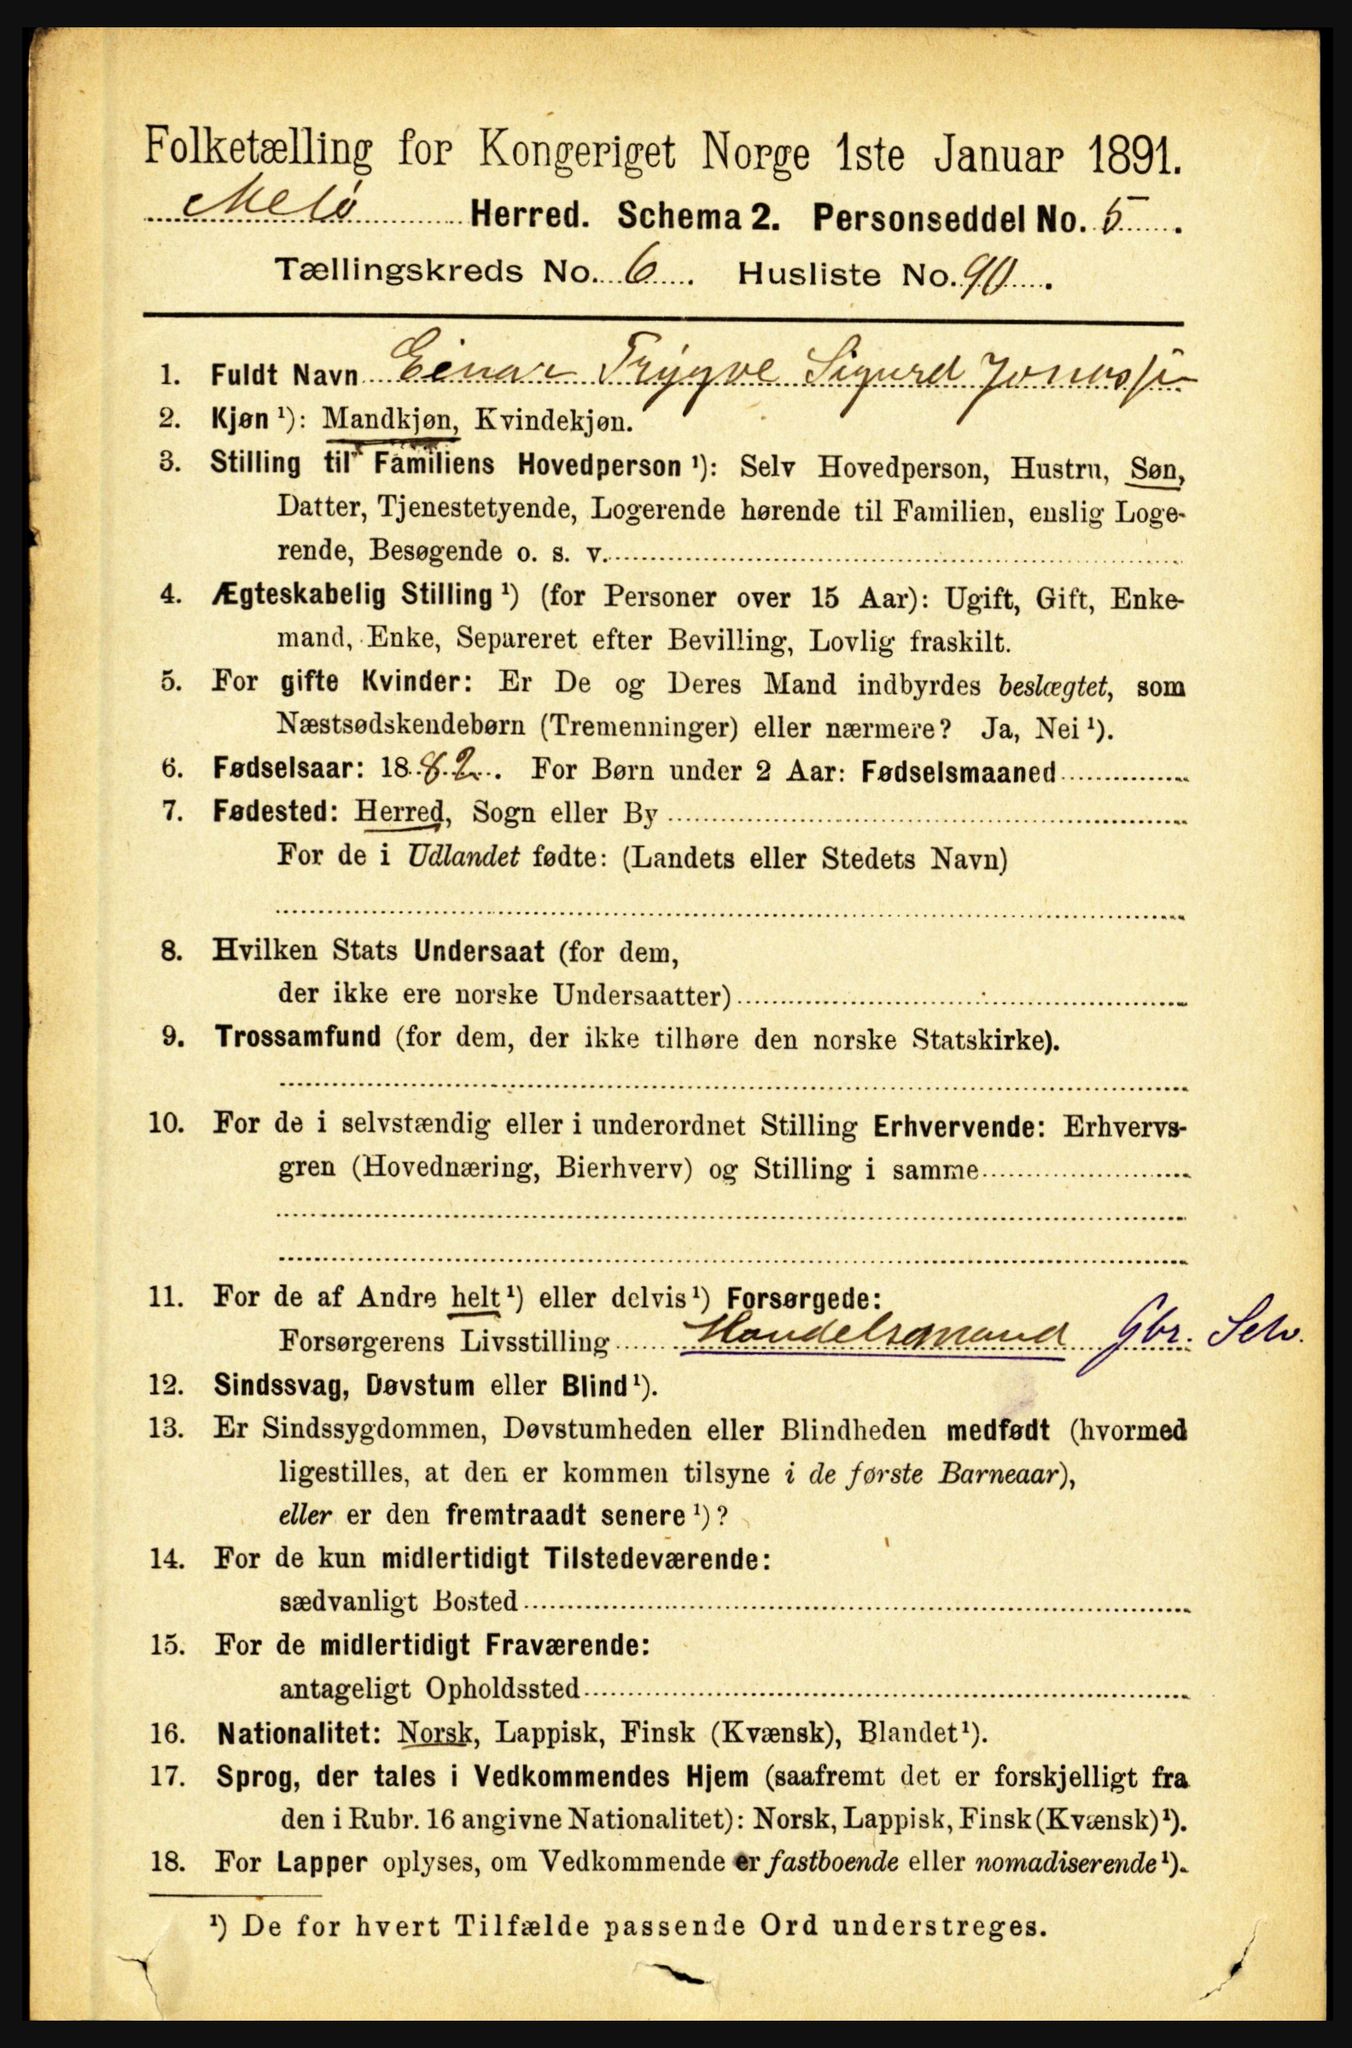 Folketælling for Kongeriget Norge 1ste Januar 1891.
Melø Herred. Schema 2. Personseddel No. 5.
Tællingskreds No. 6. Husliste No. 90.
1. Fuldt Navn Einar Trygve Sigurd Jonassen
2. Kjøn ¹): Mandkjøn, Kvindekjøn.
3. Stilling til Familiens Hovedperson ¹): Selv Hovedperson, Hustru, Søn,
Datter, Tjenestetyende, Logerende hørende til Familien, enslig Loge-
rende, Besøgende o. s. v.
4. Ægteskabelig Stilling ¹) (for Personer over 15 Aar): Ugift, Gift, Enke-
mand, Enke, Separeret efter Bevilling, Lovlig fraskilt.
5. For gifte Kvinder: Er De og Deres Mand indbyrdes beslægtet, som
Næstsødskendebørn (Tremenninger) eller nærmere? Ja, Nei ¹).
6. Fødselsaar: 1882. For Børn under 2 Aar: Fødselsmaaned
7. Fødested: Herred, Sogn eller By
For de i Udlandet fødte: (Landets eller Stedets Navn)
8. Hvilken Stats Undersaat (for dem,
der ikke ere norske Undersaatter)
9. Trossamfund (for dem, der ikke tilhøre den norske Statskirke).
10. For de i selvstændig eller i underordnet Stilling Erhvervende: Erhvervs-
gren (Hovednæring, Bierhverv) og Stilling i samme
11. For de af Andre helt ¹) eller delvis ¹) Forsørgede:
Forsørgerens Livsstilling Handelsmand Gbr. Selv.
12. Sindssvag, Døvstum eller Blind ¹).
13. Er Sindssygdommen, Døvstumheden eller Blindheden medfødt (hvormed
ligestilles, at den er kommen tilsyne i de første Barneaar),
eller er den fremtraadt senere ¹)?
14. For de kun midlertidigt Tilstedeværende:
sædvanligt Bosted
15. For de midlertidigt Fraværende:
antageligt Opholdssted
16. Nationalitet: Norsk, Lappisk, Finsk (Kvænsk), Blandet ¹).
17. Sprog, der tales i Vedkommendes Hjem (saafremt det er forskjelligt fra
den i Rubr. 16 angivne Nationalitet): Norsk, Lappisk, Finsk (Kvænsk) ¹).
18. For Lapper oplyses, om Vedkommende er fastboende eller nomadiserende ¹).
¹) De for hvert Tilfælde passende Ord understreges.